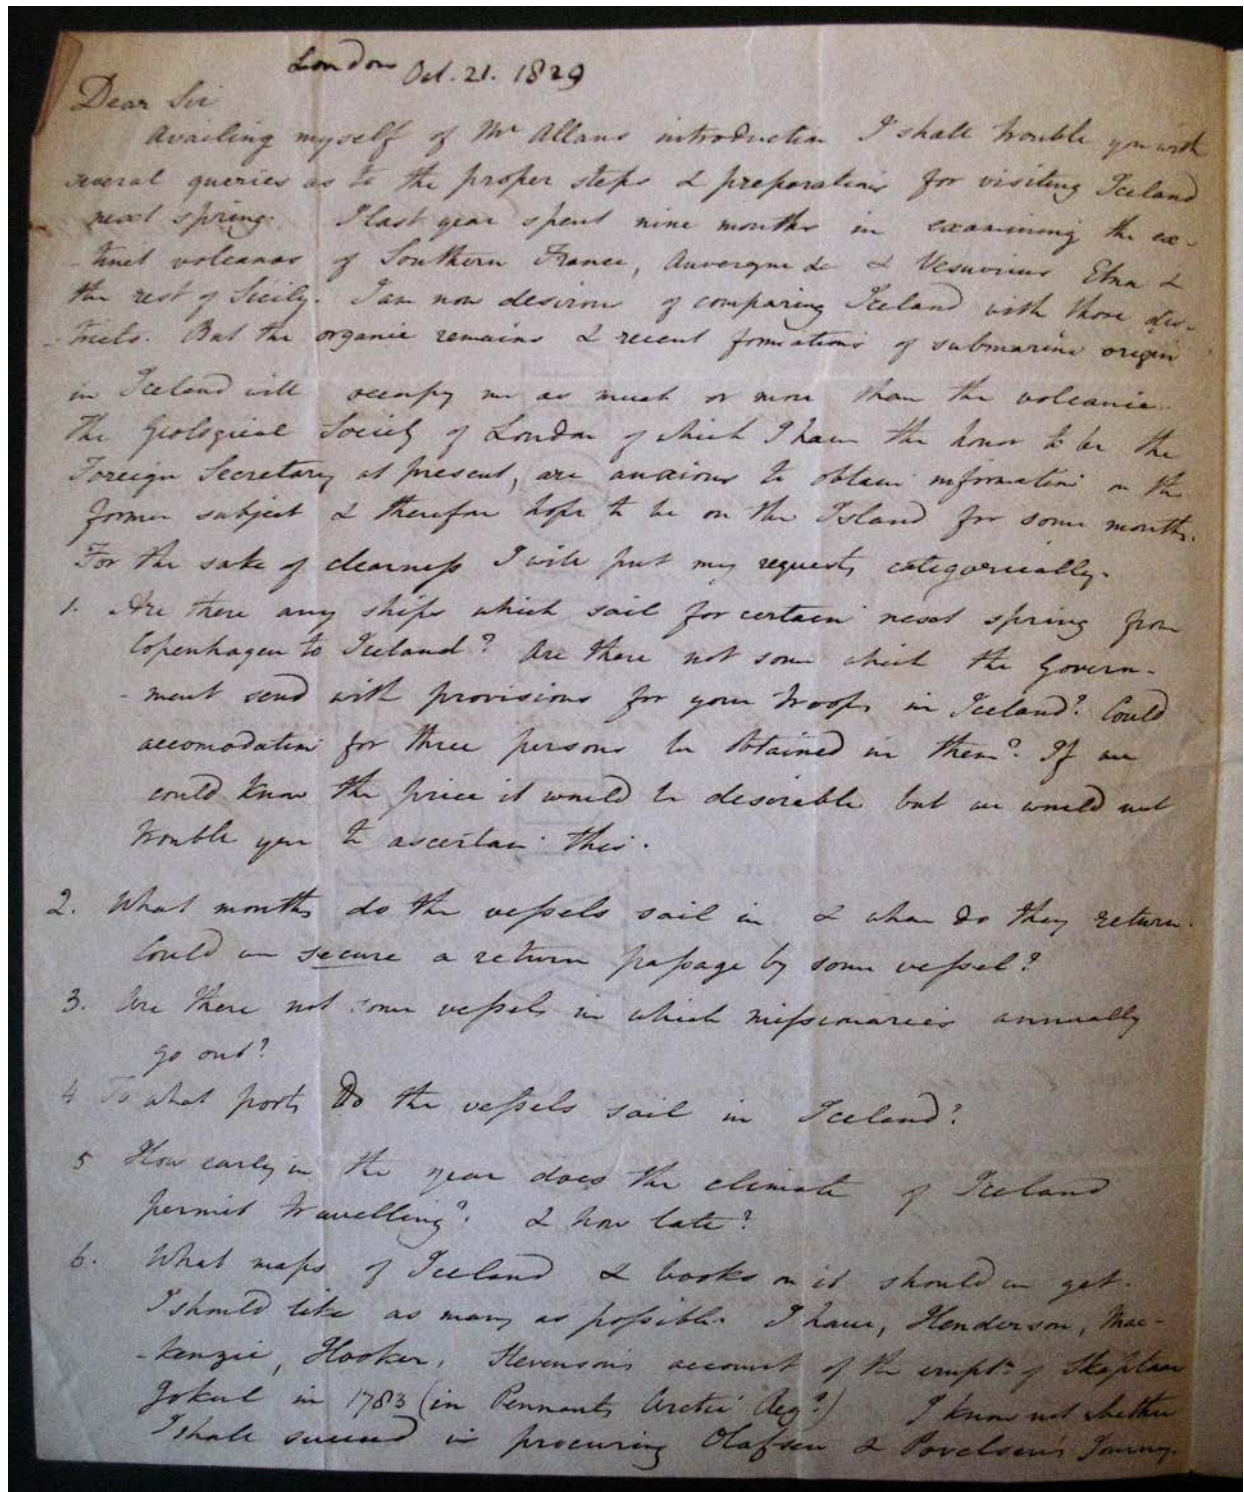 London Oct. 21. 1829
Dear Sir
Availing myself of Mr Allans introduction I shall trouble you with
several queries as to the proper steps & preparations for visiting Iceland
next spring. I last year spent nine months in examining the ex-
-tinct volcanos of Southern France, Auvergne &c & Vesuvius Etna &
the rest of Sicily. I am now desirous of comparing Iceland with those dis-
-tricts. But the organic remains & recent formations of submarine origin
in Iceland will occupy me as much or more than the volcanic.
The Geological Society of London of which I have the honor to be the
Foreign Secretary at present, are anxious to obtain information on the
former subject & therefore hope to be on the Island for some months.
For the sake of clearness I will put my requests categorically.
1. Are there any ships which sail for certain next spring from
Copenhagen to Iceland? Are there not some which the Govern-
-ment send with provisions for your troops in Iceland? Could
accomodation for three persons be obtained in them? If we
could know the price it would be desirable but we would not
trouble you to ascertain this.
2. What months do the vessels sail in & when do they return.
Could we secure a return passage by some vessel?
3. Are there not some vessels in which missionaries annually
go out?
4 To what ports do the vessels sail in Iceland?
5 How early in the year does the climate of Iceland
permit travelling? & how late?
6. What maps of Iceland & books on it should we get.
I should like as many as possible. I have, Henderson, Mac-
-kenzie, Hooker, Stevenson's account of the erupt.n of Skaptaar
Jokul in 1783 (in Pennants Arctic Reg?) I know not whether
I shall succeed in procuring Olafsen & Povelsen's Journey.